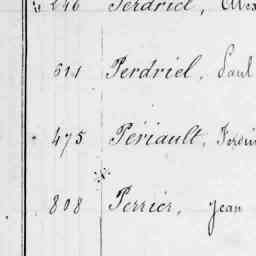 246 Perdriel, Alex
611 Perdriel, Paul
475 Périault, Ferdin
808 Perrier, Jean